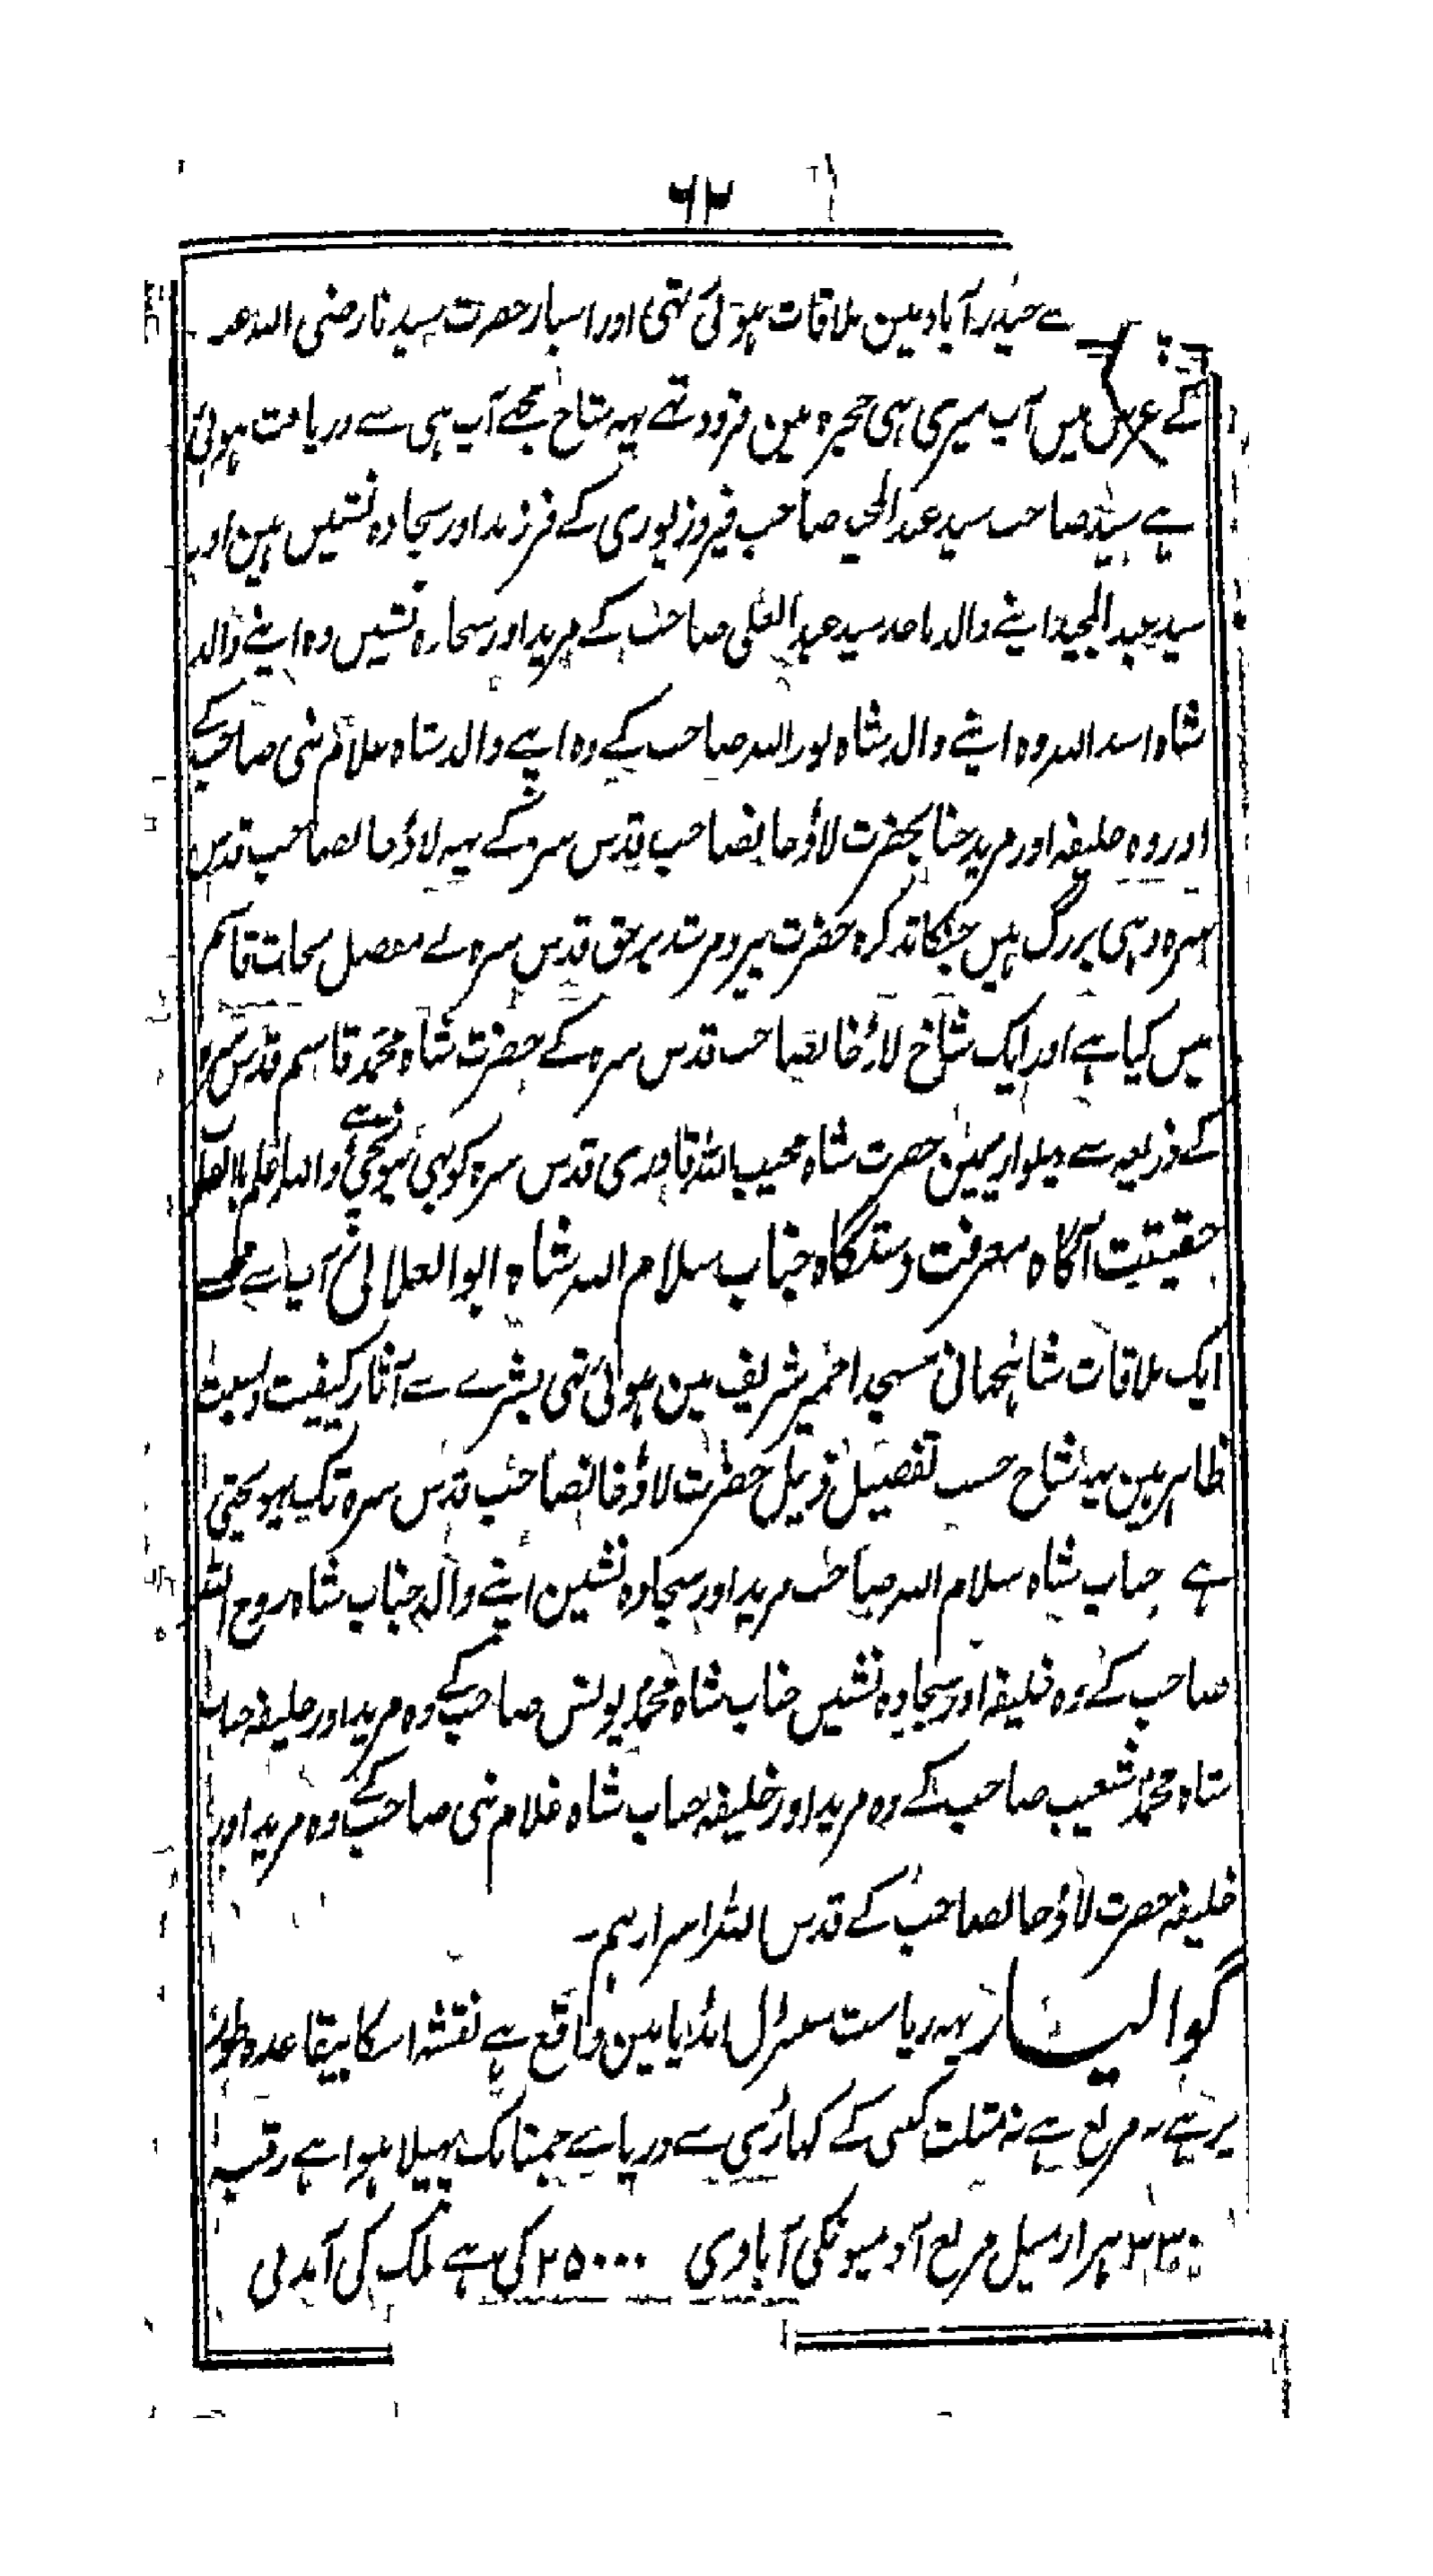 ۶۲
سے حیدرآباد مین ملاقات ہوئی تہی اور اسبار حضرت سیدنا رضی اللہ عنہ
کے عرس میں آپ میری ہی حجرہ مین فرود تہے یہہ شاخ مجھے آپ ہی سے دریافت ہوئی
ہے سید صاحب سید عبدالحی صاحب فیروزپوری کے فرزند اور سجادہ نشیں ہین اور
سید عبدالمجید اپنے والد ماجد سید عبدالعلی صاحب کے مرید اور سجادہ نشیں وہ اپنے والد
شاہ اسد اللہ وہ اپنے والد شاہ نور اللہ صاحب کے وہ اپنے والد شاہ غلام نبی صاحب کے
اور وہ خلیفہ اور مرید جناب حضرت لاڈخانصاحب قدس سرہ کے یہہ لاڈخانصاحب قدس
سرہ وہی بزرگ ہیں جنکا تذکرہ حضرت پیر و مرشد برحق قدس سرہ نے مفصل نجات قاسم
میں کیا ہے اور ایک شاخ لاڈخانصاحب قدس سرہ کے حضرت شاہ محمد قاسم قدس سرہ
کے ذریعہ سے پہلواریمین حضرت شاہ مجیب اللہ قادری قدس سرہ کو بہی پہونچی ہے واللہ اعلم بالصواب
حقیقیت آگاہ معرفت دستگاہ جناب سلام اللہ شاہ ابوالعلائی آپ سے مجھے
ایک ملاقات شاہجہانی مسجد اجمیر شریف مین ہوئی تہی بشرے سے آثار کیفیت و نسبت
ظاہر ہین یہہ شاخ حسب تفصیل ذیل حضرت لاڈخانصاحب قدس سرہ تک پہونچتی
ہے جناب شاہ سلام اللہ صاحب مرید اور سجادہ نشین اپنے والد جناب شاہ روح اللہ
صاحب کے وہ خلیفہ اور سجادہ نشیں جناب شاہ محمد یونس صاحب کے وہ مرید اور خلیفہ جناب
شاہ محمد شعیب صاحب کے وہ مرید اور خلیفہ جناب شاہ غلام نبی صاحب کے وہ مرید اور
خلیفہ حضرت لاڈخانصاحب کے قدس اللہ اسرارہم ۔
گوالیار یہہ ریاست سنٹرل انڈیا مین واقع ہے نقشہ اسکا بیقاعدہ طور
پر ہے نہ مربع ہے نہ مثلث کسی کے کہاڑی سے دریاے جمنا تک پہیلا ہوا ہے رقبہ
۳۳ ہزار میل مربع آدمیونکی آبادی ۲۵۰۰۰۰۰ کی ہے ملک کی آمدنی